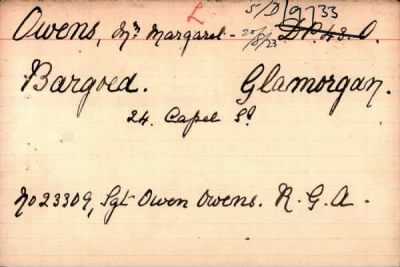 L 5/D/9733
Owens, Mrs Margaret - 25/8/23 D.P. 43. O.
Bargoed. Glamorgan.
24. Capel St
No 23309, Sgt Owen Owens. R. G. A.